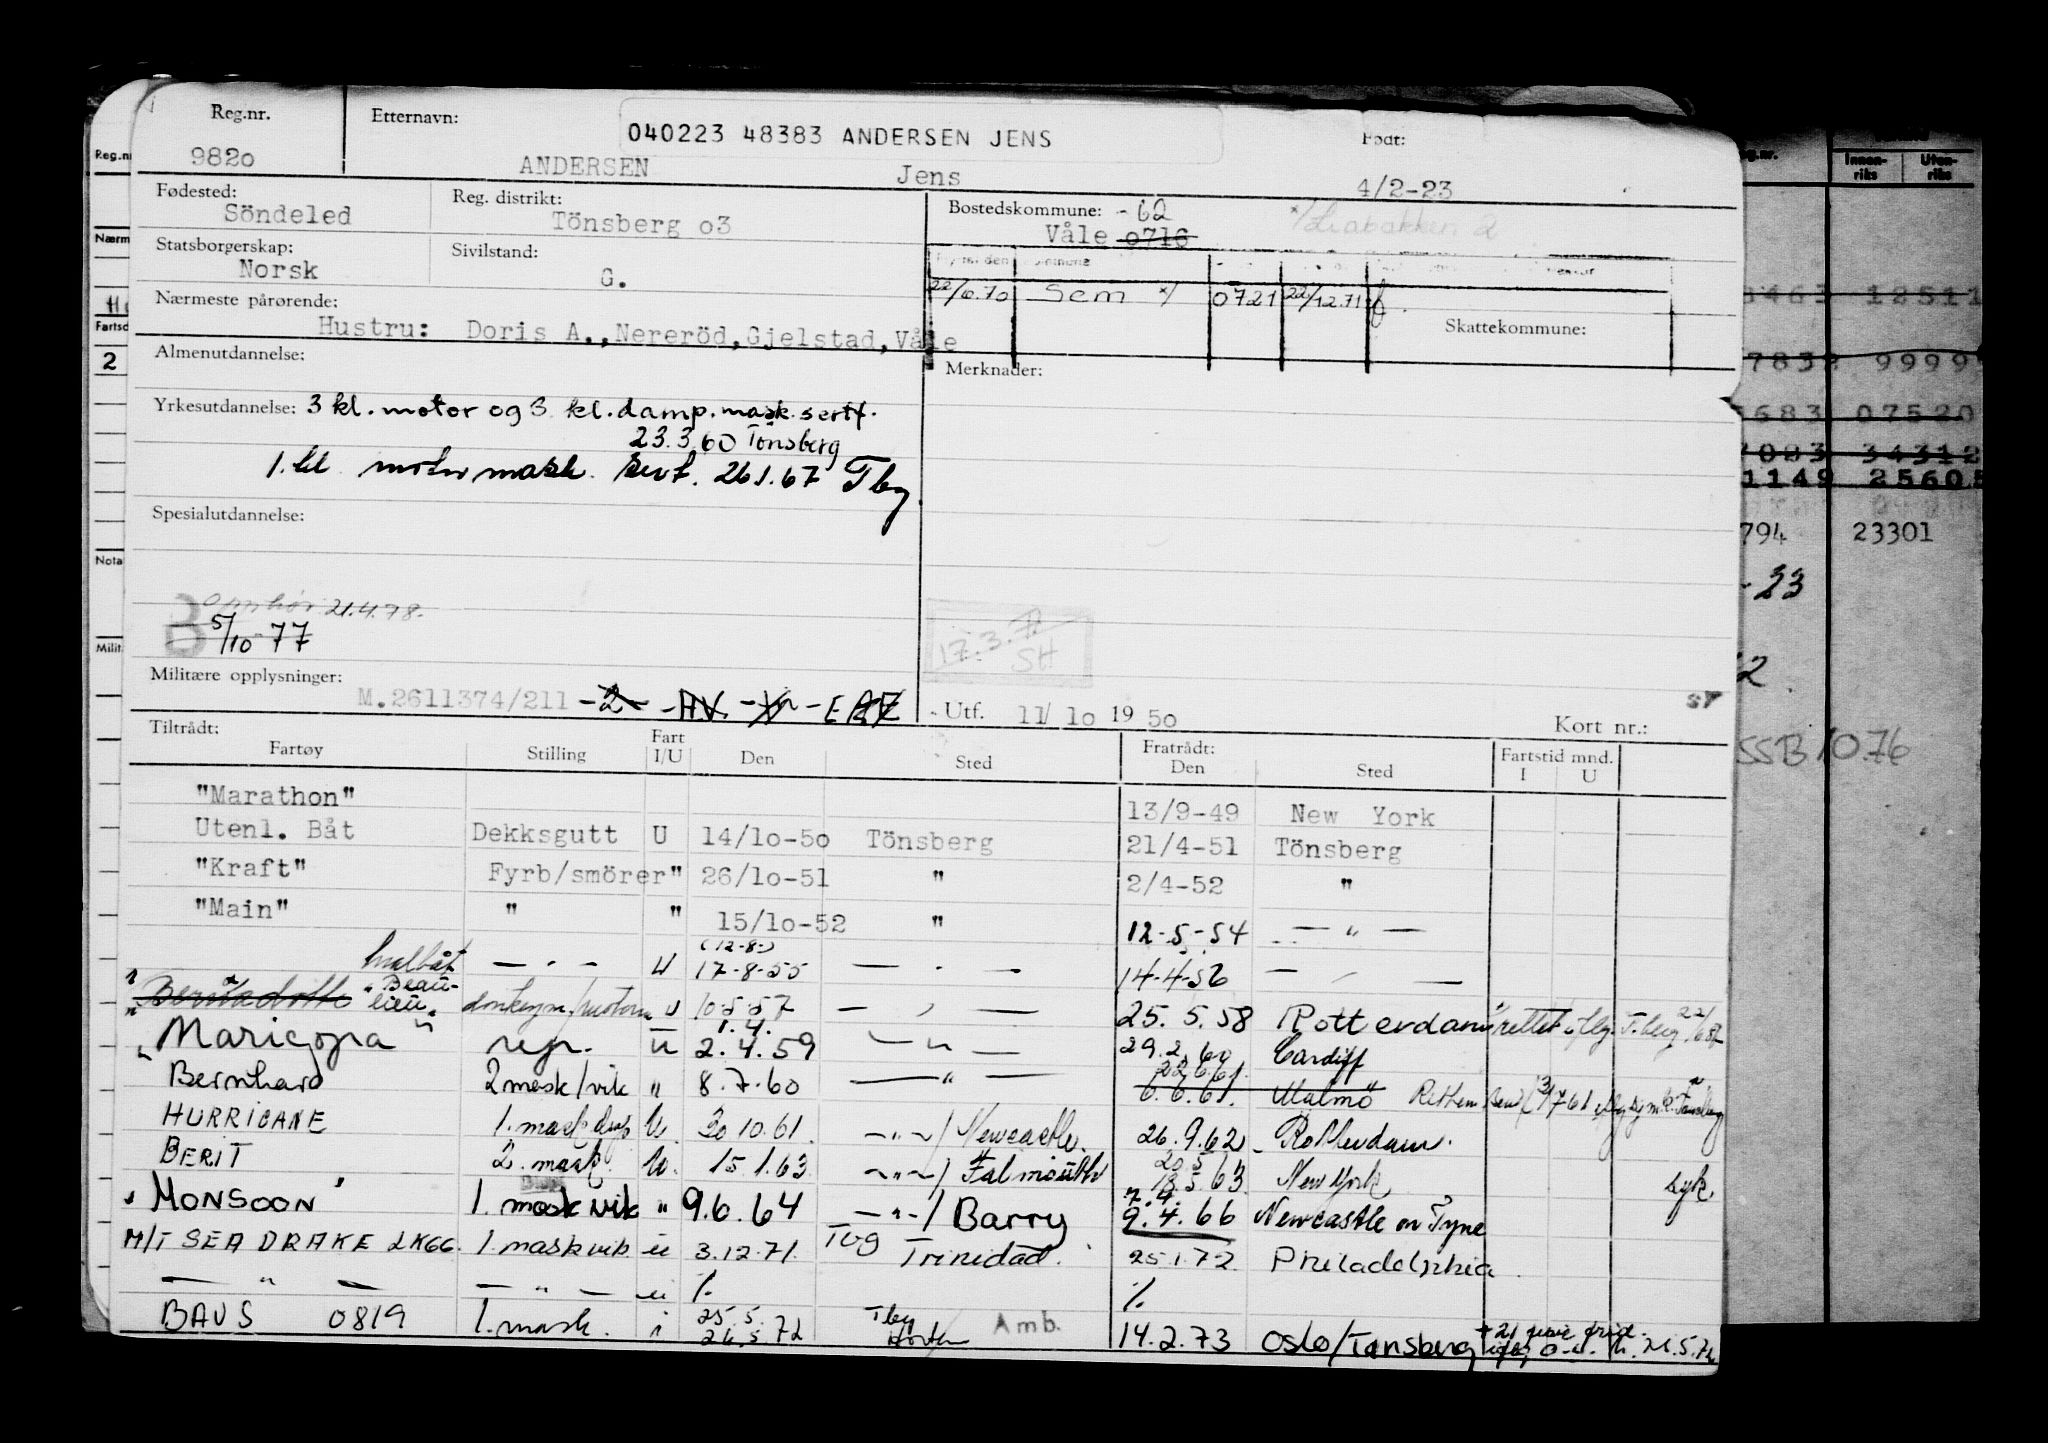 Reg.nr. Etternavn: 040223 48383 ANDERSEN JENS Født:
9820 ANDERSEN Jens 4/2-23
Fødested: Reg. distrikt: Bostedskommune: -62
Söndeled Tönsberg o3 Våle 0716
Statsborgerskap: Sivilstand:
Norsk G.
22/6.70 Sem x/ 0721 22/12.71
Nærmeste pårørende: Skattekommune:
Hustru: Doris A.,Nereröd,Gjelstad,Våle
Almenutdannelse: Merknader:
Yrkesutdannelse: 3 kl. motor og 3 kl. damp. mask. sertf.
23.3.60 Tönsberg
1. kl motormask. sert. 26.1.67 Tbg
Spesialutdannelse:
Opphør 21.4.78.
5/10-77
17.3.72
SH
Militære opplysninger: M.2611374/211 -2- -HV.
Utf. 11/10 1950 Kort nr.:
Tiltrådt: Fratrådt: Fartstid mnd.
Fartøy Stilling Fart I/U Den Sted Den Sted I U
"Marathon" 13/9-49 New York
Utenl. Båt Dekksgutt U 14/1o-5o Tönsberg 21/4-51 Tönsberg
"Kraft" Fyrb/smörer " 26/1o-51 " 2/4-52 "
"Main" " " 15/1o-52 " 12-5-54 — " —
hvalbåt — " — U (12-8-) 17-8-55 — " — 14-4-56 — " —
"Beaulieu" donkeym/motorm U 10.5.57 — " — 25.5.58 Rotterdam
"Maricopa" rep. U 1.4. 2.4.59 — " — 29.2.60 Cardiff
Bernhard 2 mask/vik " 8.7.60 — " — 22.6.61. 6.6.61. Malmö
HURRICANE 1. mask U. 20.10.61. — " — / Newcastle. 26.9.62 Rotterdam.
BERIT 2. mask. U. 15.1.63. — " — / Falmouth 20.5 18.5.63 New York syk.
"MONSOON" 1. mask vik " 9.6.64 — " — / Barry 7.4. 9.4.66 Newcastle on Tyne
M/T SEA DRAKE LK66. 1. mask vik. u 3.12.71. Tbg Trinidad. 25.1.72. Philadelphia.
— " — — " — u % %
BAUS 0819 1. mask. i 25.5. 26.5.72 Tbg Horten Amb. 14.2.73 Oslo/Tønsberg
Reg.nr. Innen-riks Uten-riks
Nærm
2
Nota
Milit
12511
9999
07520
34312
1149 25605
794 23301
-23
SSB 10.76